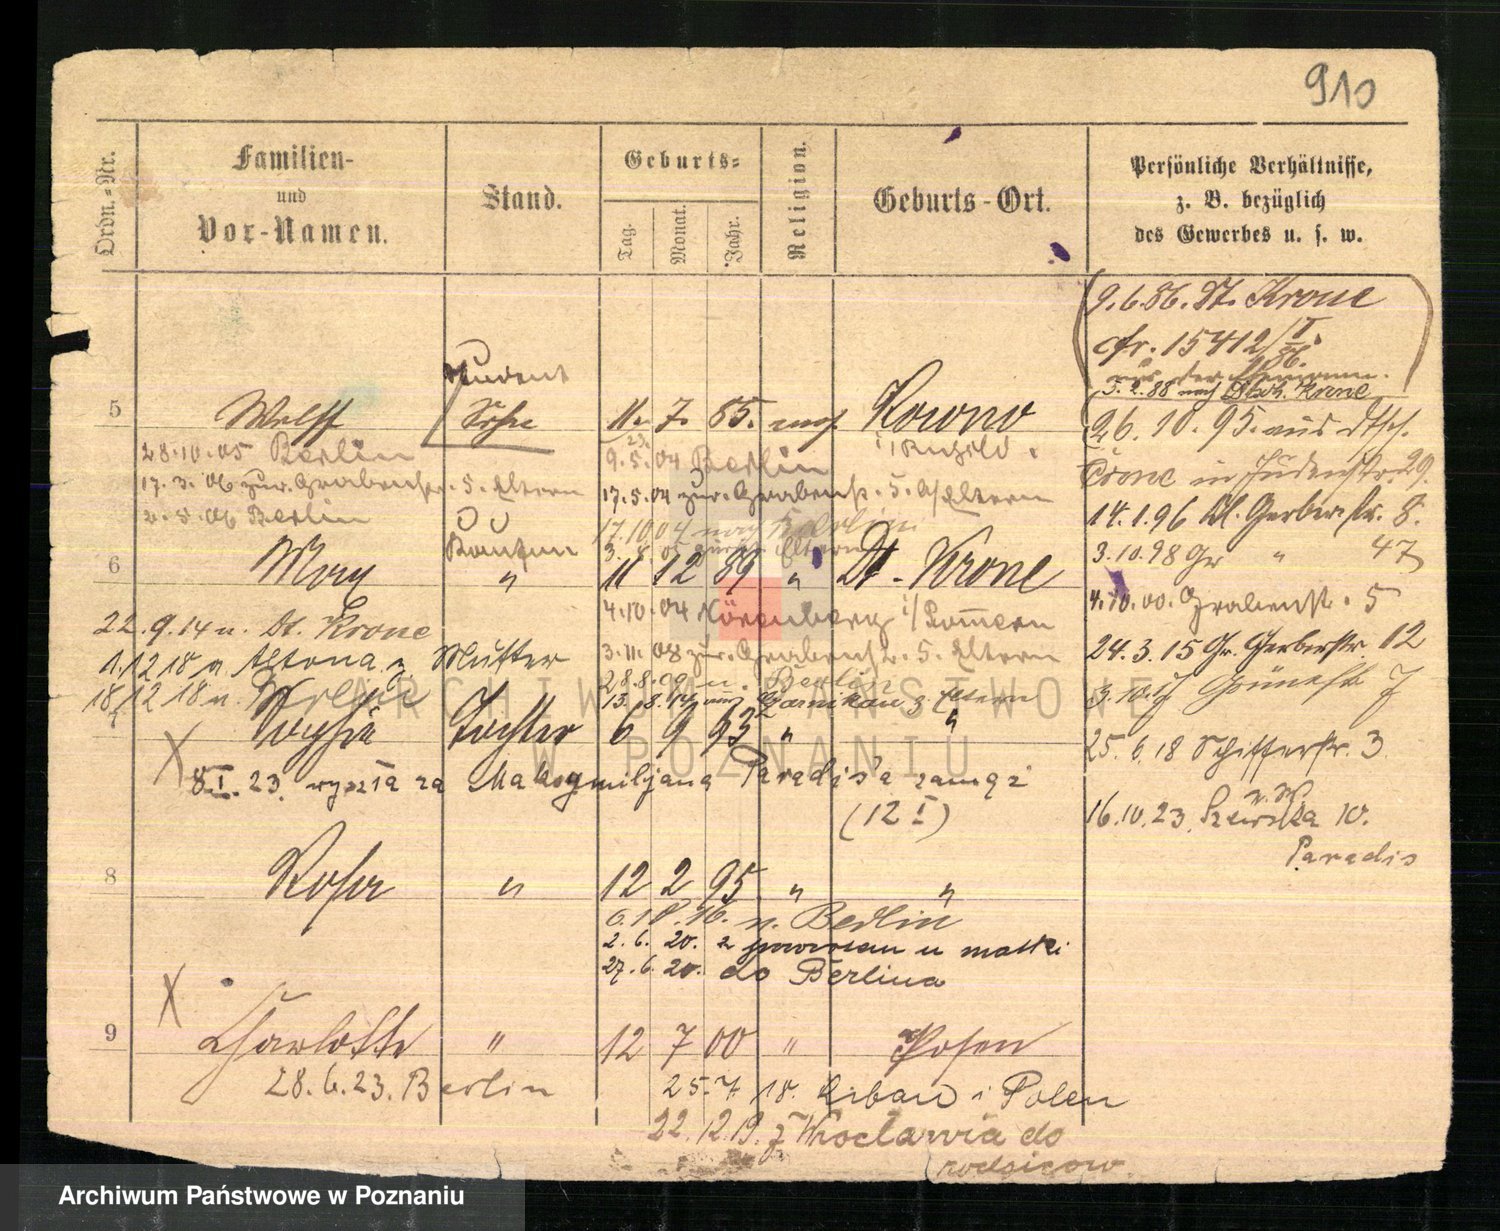 910
Ordn.-Nr.
Familien-
und
Vor-Namen.
Stand.
Geburts-
Tag.
Monat.
Jahr.
Religion.
Geburts-Ort.
Persönliche Verhältnisse,
z. B. bezüglich
des Gewerbes u. s. w.
9.6.86. Dt. Krone
cfr. 15412/II.
86.
5.2.88 nach Krone
Student
5 Wolff Sohn 11. 7. 85. mos. Kowno
i/Rußld.
26.10.95. aus Dtsch.
Crone in Judenstr. 29.
28.10.05 Berlin
23.
9.5.04 Berlin
17.3.06 zur. Grabenstr. 5. Eltern
17.5.04 zur. Grabenstr. 5. b/Eltern
2.5.06 Berlin
17.10.04 nach Berlin
14.1.96 Kl. Gerberstr. 8.
3.8.05 zurück Eltern
3.10.98 Gr " 47
6 Max " 11 12 89 " Dt.-Krone
4.10.04 Nörenberg i/Pommern
4.10.00. Grabenstr. 5
22.9.14 n. Dt. Krone
1.12.18 v. Altona z. Mutter
3.11.08 zur. Grabenstr. 5. Eltern
24.3.15 Gr. Gerberstr. 12
28.8.09 n. Berlin
18/12 18 n.
13.8. aus Czarnikau z Eltern
3.10.17 Grünestr 7
7 Sophie Tochter 6 9 93 " "
25.6.18 Schifferstr. 3
8.I.23. wyszła za Maksymiljana Paradis'a zamąż
(12 I)
16.10.23. Szewska 10.
Paradis
8 Rosa " 12 2 95 " "
6.18.16. n. Berlin
2.6.20. z powrotem u matki
27.6.20. do Berlina
9 Charlotte " 12 7 00 " Posen
28.6.23. Berlin
25.7.18. Libau i Polen
22.12.19. z Wrocławia do
rodziców.
ARCHIWUM PAŃSTWOWE
W POZNANIU
Archiwum Państwowe w Poznaniu